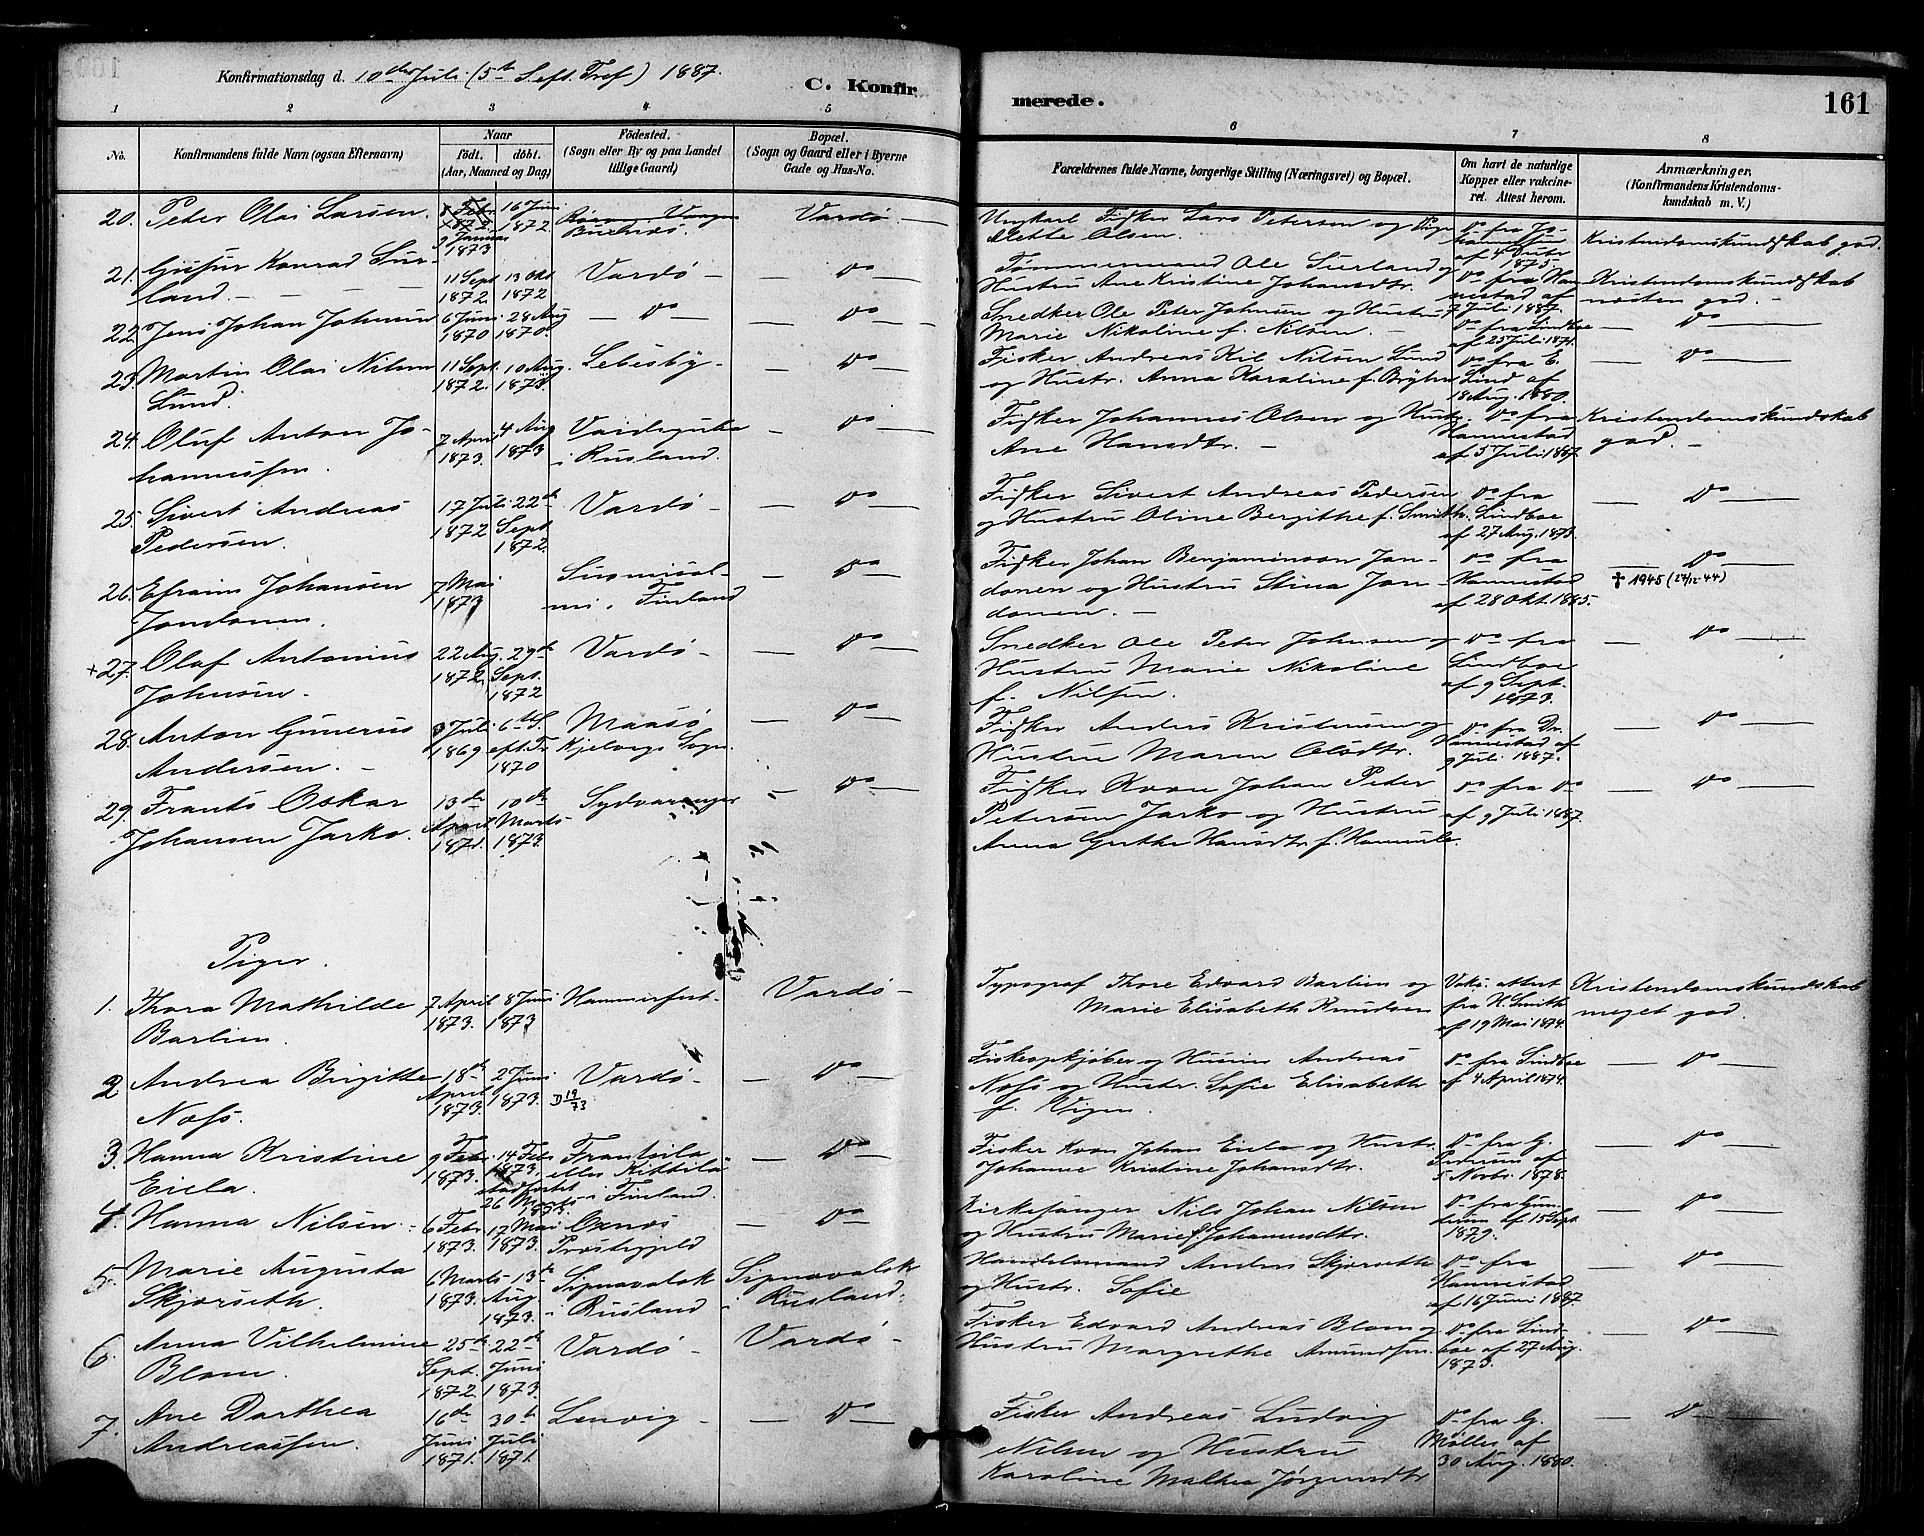 Konfirmationsdag d. 10de Juli (5te S. eft. Tref.) 1887.
C. Konfirmerede.
161
1 2 3 4 5 6 7 8
No.
Konfirmandens fulde Navn (ogsaa Efternavn)
Naar
födt. döbt.
(Aar, Maaned og Dag)
Födested.
(Sogn eller By og paa Landet
tillige Gaard)
Bopæl.
(Sogn og Gaard eller i Byerne
Gade og Hus-No.
Forældrenes fulde Navne, borgerlige Stilling (Næringsvei) og Bopæl.
Om havt de naturlige
Kopper eller vakcine-
ret. Attest herom.
Anmærkninger.
(Konfirmandens Kristendoms-
kundskab m. V.)
20. Peter Olai Larsen. 8 Febr. 1872. 9 Januar 1873 16 Juni 1872 Buksnæs. Vardö
Ungkarl Fisker Lars Petersen og Pige
Mette Olsen.
Kristendomskundskab god.
21. Konrad Sur-
land. 11 Sept. 1872. 13 Okt 1872 Vardö Do
Tømmermand Ole Surland og
Hustru Ane Kristine Johansdtr. Do fra Han-
nestad af
7 Juli 1887. Kristendomskundskab
næsten god.
22. Jens Johan Johnsen 6 Juni 1870 28 Aug 1870. Do Do
Snedker Ole Peter Johnsen og Hustru
Marie Nikoline f. Nilsen. Do fra Lindboe
af 25 Juli 1871. Do
23. Martin Olai Nilsen
Lund. 11 Sept. 1872. 10 Aug. 1873. Lebesby Do
Fisker Andreas Kil Nilsen Lund
og Hustr. Anna Karoline f. Do fra E.
Lind af
18 Aug. 1880. Do
24. Oluf Anton Jo-
hannessen. 7 April 1873. 4 Aug 1873 Vaidaguba
i Rusland. Do
Fisker Johannes Olsen og Hustr.
Ane Hansdtr. Do fra
Hannestad
af 5 Juli 1887. Kristendomskundskab
god.
25. Sivert Andreas
Pedersen. 17 Juli 1872 22de Sept 1872. Vardö Do
Fisker Sivert Andreas Pedersen
og Hustru Oline Bergitthe f. Smith. Do fra
Lindboe
af 27 Aug. 1873. Do
26. Efraim Johansen
Jondonen. 7 Mai 1873 Suomisal-
mi i Finland Do
Fisker Johan Benjaminson Jon-
donen og Hustru Stina Jon-
donen. Do fra
Hannestad
af 28 Okt. 1885. Do
✝ 1945 (24/12-44)
+27. Olaf Antonius
Johnsen. 22 Aug. 1872 29de Sept. 1872 Vardö Do
Snedker Ole Peter Johnsen og
Hustru Marie Nikoline
f. Nilsen. Do fra
Lindboe
af 9 Sept.
1873. Do
28. Anton Gunerus
Andersen. 3 Juli 1869 6te S. eft. Tr. 1870 Maasö
Kjelvigs Sogn. Do
Fisker Anders Kristensen og
Hustru Maren Olsdtr. Do fra Dr.
Hannestad af
9 Juli 1887. Do
29. Frants Oskar
Johansen Jarko. 13de April 1871. 10de Marts 1873. Sydvaranger Do
Fisker Kvæn Johan Peter
Petersen Jarko og Hustru
Anna Grethe Hansdtr. f. Do fra Do
af 9 Juli 1887. Do
Piger.
1. Thora Mathilde
Barlien. 7 April 1873. 8 Juni 1873 Hammerfest. Vardö
Typograf Thore Edvard Barlien og
Marie Elisabeth Knudsen Vaks. attest
fra K. Smith
af 19 Mai 1874. Kristendomskundskab
meget god.
2. Andrea Birgitte
Næss. 18de April 1873. 2 Juni 1873. D 19/73 Vardö Do
Fiskeopkjøber og Andreas
Næss og Hustr. Sofie Elisabeth
f. Vigen. Do fra Lindboe
af 4 April 1874. Do
3. Hanna Kristine
Eiela. 9 Febr. 1873. 14 Febr. 1873. stadfæstet
26 Marts Frantsila
eller Kittila
i Finland. Do
Fisker Kvæn Johan Eiela og Hustr.
Johanne Kristine Johansdtr. Do fra G.
Pedersen af
5 Novbr. 1878. Do
4. Hanna Nilsen. 6 Febr. 1873. 17 Mai 1873. Öxnæs
Præstegjeld Do
Kirkesanger Nils Johan Nilsen
og Hustru Marie f. Johannesdtr. Do fra Gun-
dersen af 15 Sept.
1879. Do
5. Marie Augusta
Skjørseth. 6 Marts 1873. 13de Aug. 1873. Sipnavalok
i Rusland Sipnavalok
i Rusland.
Handelsmand Anders Skjørseth
og Hustr. Sofie Do fra
Hannestad
af 16 Juni 1887. Do
6. Anna Vilhelmine
Blom. 25de Sept. 1872 22de Juni 1873. Vardö Vardö
Fisker Edvard Andreas Blom og
Hustru Margrethe Amundsen. Do fra Lind-
boe af 27 Aug.
1873. Do
7. Ane Dorthea
Andreassen. 16de Juni 1871. 30te Juli 1871. Lenvig Do
Fisker Andreas Ludvig
Nilsen og Hustru
Karoline Mathea Jørgensdtr. Do fra G.
Møller af
30 Aug. 1880. Do